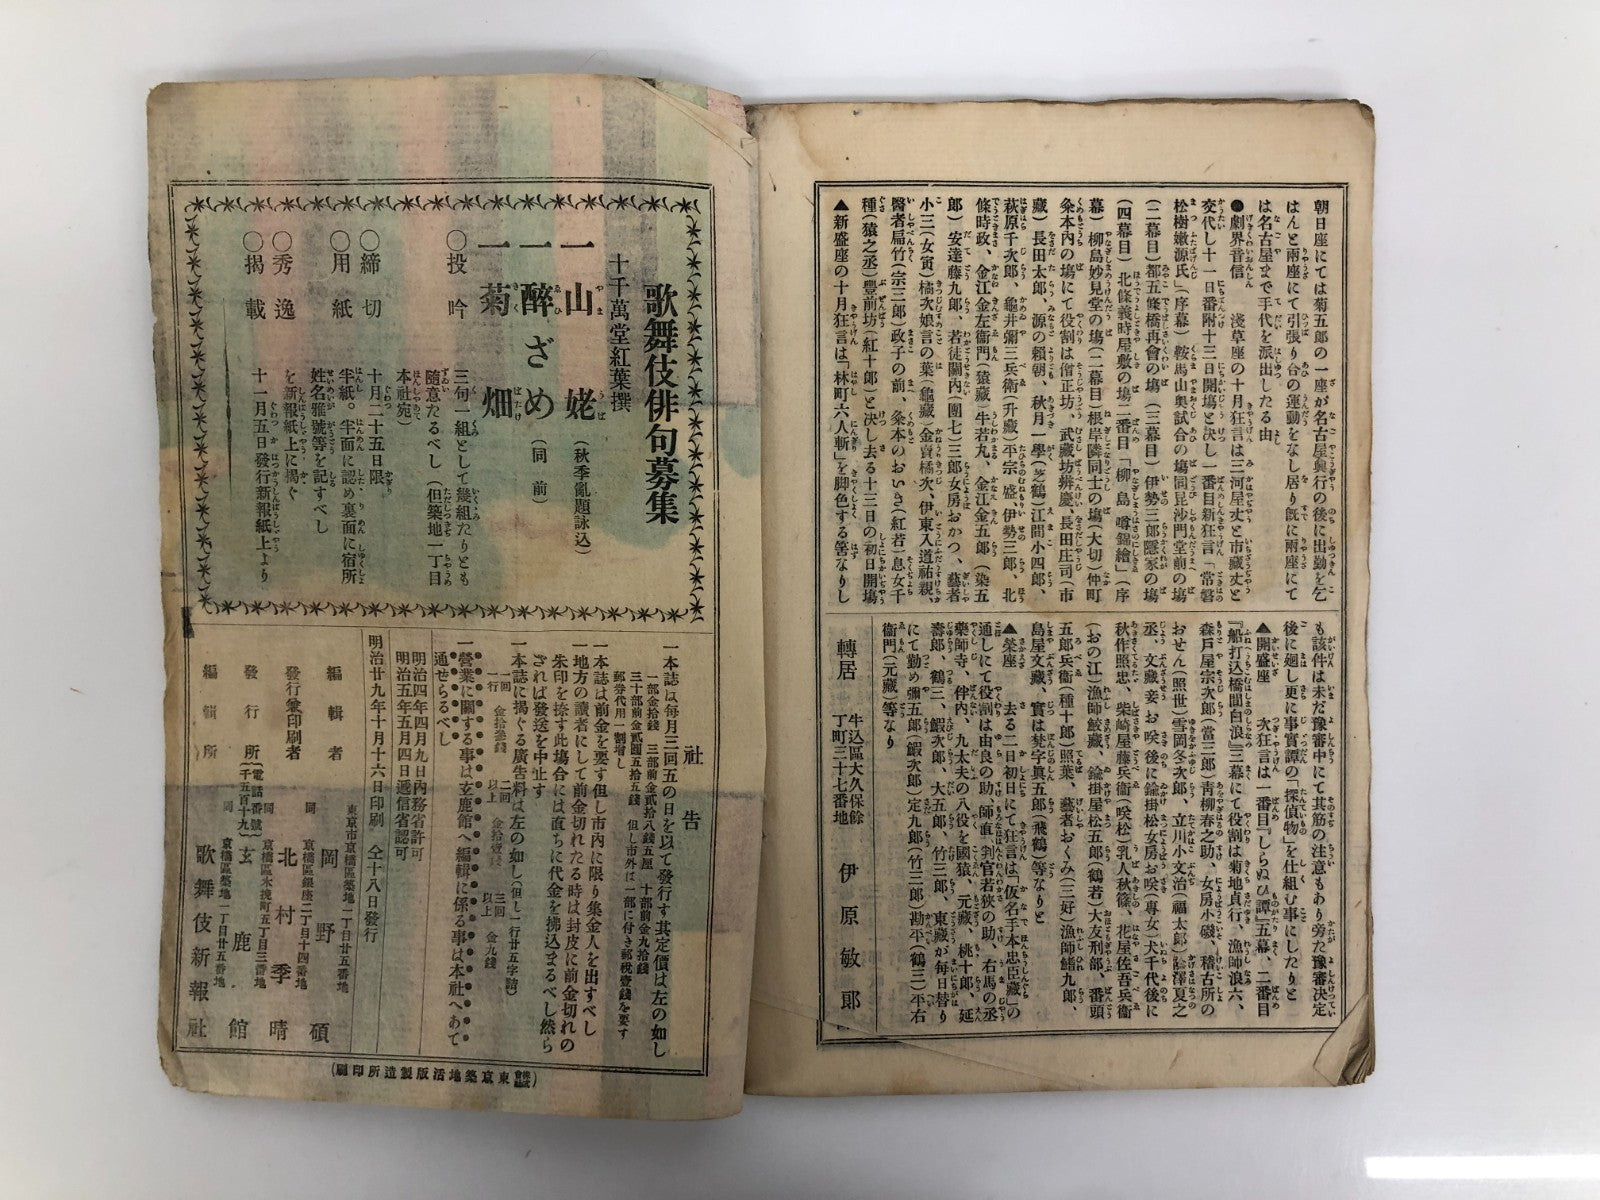 朝日座にては菊五郎の一座が名古屋興行の後に出勤を乞
はんと兩座にて引張り合の運動をなし居り既に兩座にて
は名古屋まで手代を派出したる由
●劇界音信　淺草座の十月狂言は三河屋丈と市藏丈と
交代し十一日番附十三日開塲と決し一番目新狂言「常磐
松樹嫩源氏」（序幕）鞍馬山奥試合の塲同毘沙門堂前の塲
（二幕目）都五條橋再會の塲（三幕目）伊勢三郎隱家の塲
（四幕目）北條義時屋敷の塲二番目「柳島噂錦繪」（序
幕）柳島妙見堂の塲（二幕目）根岸隣同士の塲（大切）仲町
粂本内の塲にて役割は僧正坊、武藏坊辨慶、長田庄司（市
藏）長田太郎、源の賴朝、秋月一學（芝鶴）江間小四郎、
萩原千次郎、龜井彌三兵衛（升藏）平宗盛伊勢三郎、北
條時政、金江金左衞門（猿藏）牛若丸、金江金五郎（染五
郎）安達藤九郎、若徒關内（團七）三郎女房おかつ、藝者
小三（女寅）橘次娘言の葉（龜藏）金賣橘次、伊東入道祐親
醫者扁竹（宗三郎）政子の前、粂本のおいき（紅若）息女千
種（猿之丞）豐前坊（紅十郎）と決し去る十三日の初日開塲
▲新盛座の十月狂言は「林町六人斬」を脚色する筈なりし
も該件は未だ豫審中にて其筋の注意もあり旁た豫審決定
後に廻し更に事實譚の「探偵物」を仕組む事にしたりと
▲開盛座　次狂言は一番目『しらぬひ譚』五幕、二番目
『船打込橋間白浪』三幕にて役割は菊地貞行、漁師浪六、
森戸屋宗次郎（當三郎）青柳春之助、女房小磯、稽古所の
おせん（照世）雪岡冬次郎、立川小文治（福太郎）
丞、文藏妾お咲後に鑄掛松女房お咲（專女）犬千代後に
秋作照忠、柴崎屋藤兵衞（咲松）乳人秋篠、花屋佐吾兵衞
（おの江）漁師鮫藏、鑄掛屋松五郎（鶴若）大友刑部、番頭
五郎兵衞（種十郎）照葉、藝者おくみ（三好）漁師鰭九郎、
島屋文藏、實は梵字眞五郎（飛鶴）等なりと
▲榮座　去る二日初日にて狂言は「仮名手本忠臣藏」の
通しにて役割は由良の助、師直、判官若狹の助、右馬の丞
藥師寺、伴内、九太夫の八役を國猿、元藏、桃十郎、延
壽郎、鶴三、鰕次郎、大五郎、竹三郎、東藏が毎日替り
にて勤め彌五郎（鰕次郎）定九郎（竹三郎）勘平（鶴三）平右
衞門（元藏）等なり
轉居　牛込區大久保餘丁町三十七番地　伊原敏郎
歌舞伎俳句募集
十千萬堂紅葉撰
一山姥（秋季亂題詠込）
一醉ざめ（同前）
一菊畑
○投吟　三句一組として幾組たりとも
隨意たるべし（但築地一丁目
本社宛）
○締切　十月二十五日限
○用紙　半紙。半面に認め裏面に宿所
姓名雅號等を記すべし
○秀逸　を新報紙上に揭ぐ
○揭載　十一月五日發行新報紙上より
社告
一本誌は毎月三回五の日を以て發行す其定價は左の如し
一部金拾錢　三部前金貳拾八錢五厘　十部前金九拾錢
三十部前金貳圓五拾五錢　但し市外は一部に付き郵稅壹錢を要す
郵券代用一割增し
一本誌は前金を要す但し市内に限り集金人を出すべし
一地方の讀者にして前金切れたる時は封皮に前金切れの
朱印を捺す此場合には直ちに代金を拂込まるべし然ら
ざれば發送を中止す
一本誌に揭ぐる廣告料は左の如し（但し一行廿五字詰）
一回一行　金拾叄錢　二回以上　金拾壹錢　三回以上　金九錢
一營業に關する事は玄鹿館へ編輯に係る事は本社へあて
通せらるべし
明治四年四月九日内務省許可
明治五年五月四日遞信省認可
明治廿九年十月十六日印刷　仝十八日發行
東京市京橋區築地一丁目廿五番地
編輯者　岡野碩
同　京橋區銀座二丁目十四番地
發行兼印刷者　北村季晴
同　京橋區木挽町五丁目三番地
發行所（電話番號千五百十九）玄鹿館
同　京橋區築地一丁目廿五番地
編輯所　歌舞伎新報社
（株式會社東京築地活版製造所印刷）